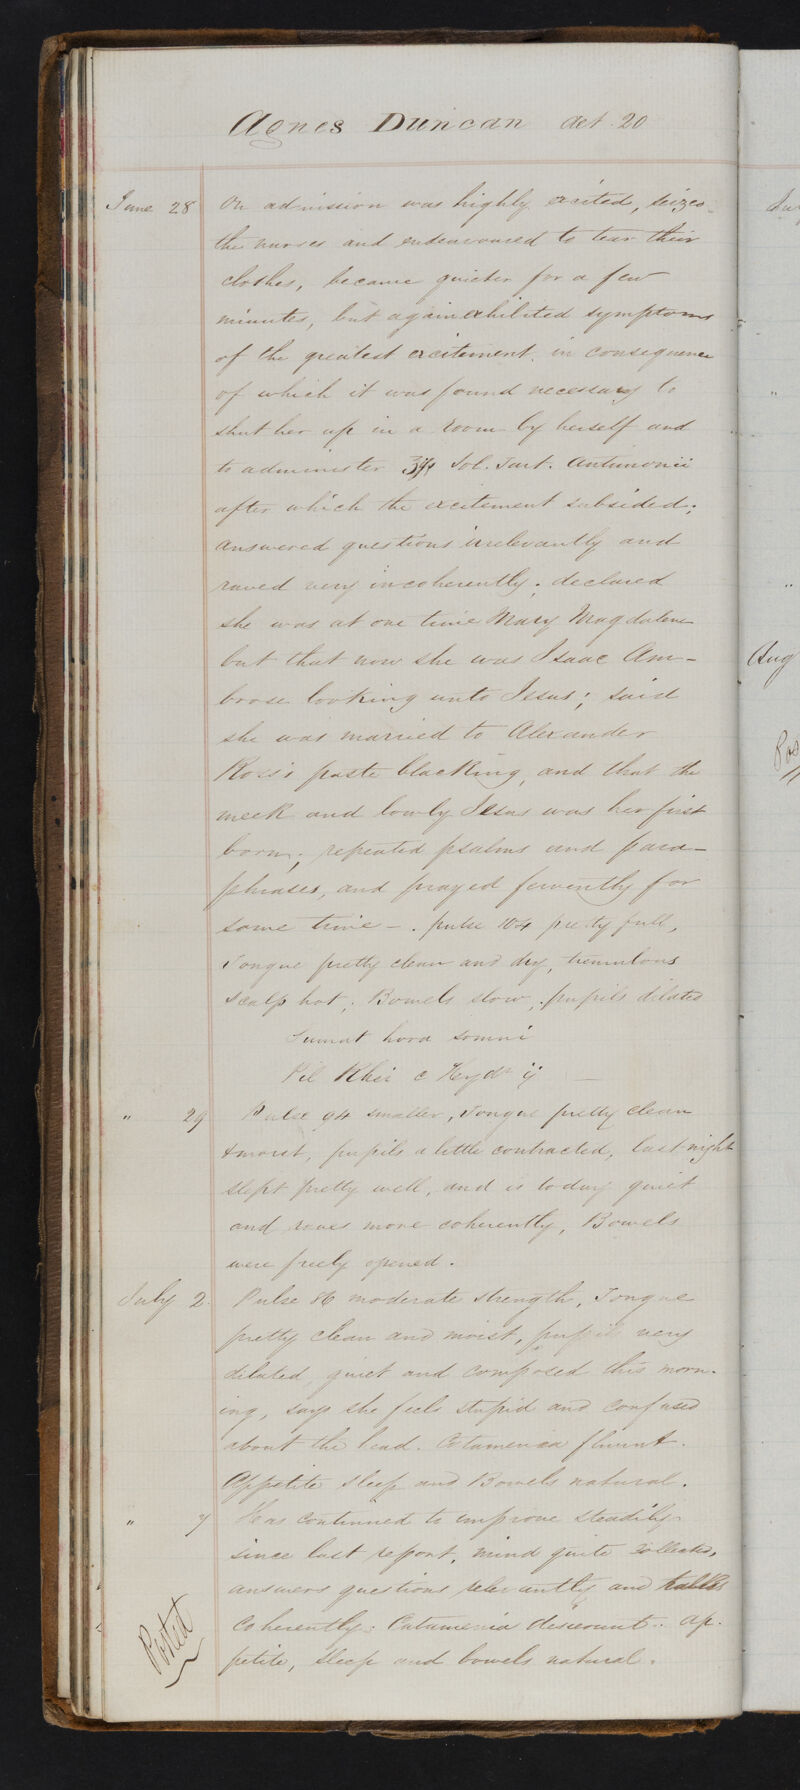 Agnes Duncan aet. 20
June 28 On admission was highly excited, seizes
the nurses and endeavoured to tear their
clothes, became quieter for a few
minutes, but again exhibited symptoms
of the greatest excitement. in consequence
of which it was found necessary to
shut her up in a room by herself and
to administer Sol. Tart. Antimonii
after which the excitement subsided;
answered questions irrelevantly and
raved very incoherently; declared
she was at one time Mary Magdalene
but that now she was Isaac Am-
brose looking unto Jesus; said
she was married to Alexander
Ross's paste blacking, and that the
meek and lowly Jesus was her first
born; repeated psalms and para-
phrases, and prayed fervently for
some time -. pulse 104 pretty full,
Tongue pretty clean and dry, tremulous
scalp hot; Bowels slow; pupils dilated
Sumat hora somni
Pil Rhei c Hydr ij —
" 29 Pulse 94 smaller, Tongue pretty clean
& moist, pupils a little contracted, last night
slept pretty well, and is to day quiet
and raves more coherently, Bowels
were freely opened.
July 2. Pulse 86 moderate strength, Tongue
pretty clean and moist, pupils very
dilated, quiet and composed this morn-
ing, says she feels stupid and confused
about the head. Catamenia fluunt.
Appetite sleep and Bowels natural.
" 7 Has continued to improve steadily
since last report, mind quite collected,
answers questions relevantly and talks
coherently: Catamenia descerunt.. ap-
petite, sleep and bowels natural.
Posted
Aug